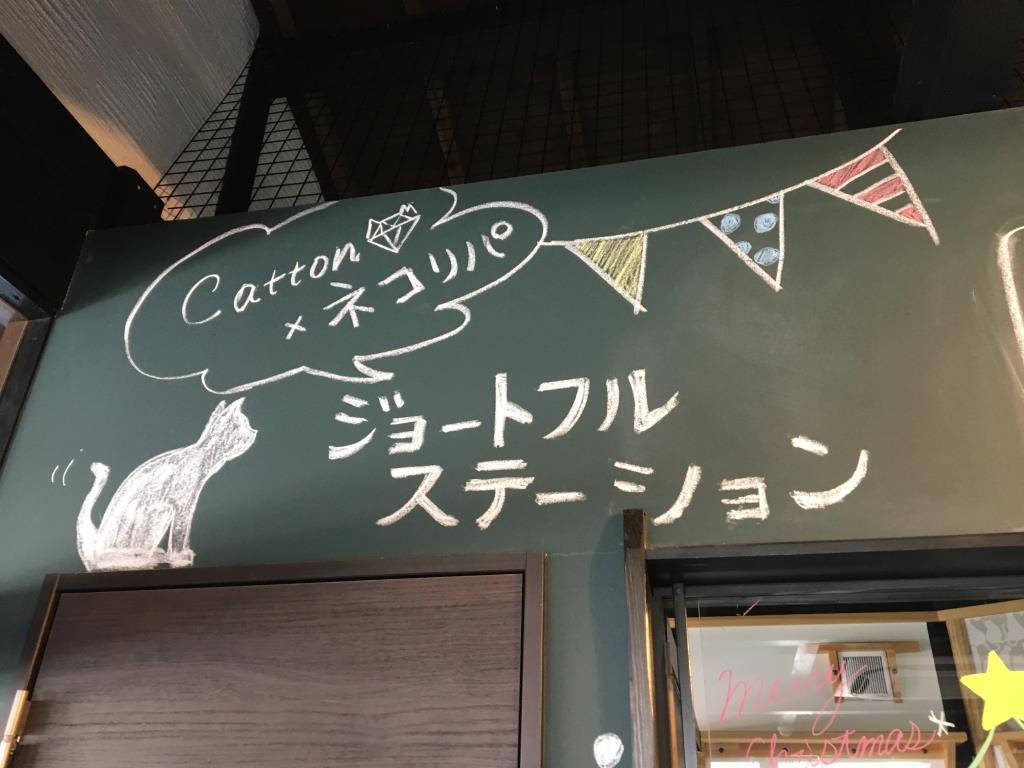 Catton
×ネコリパ
ジョートフル
ステーション
Merry
Christmas